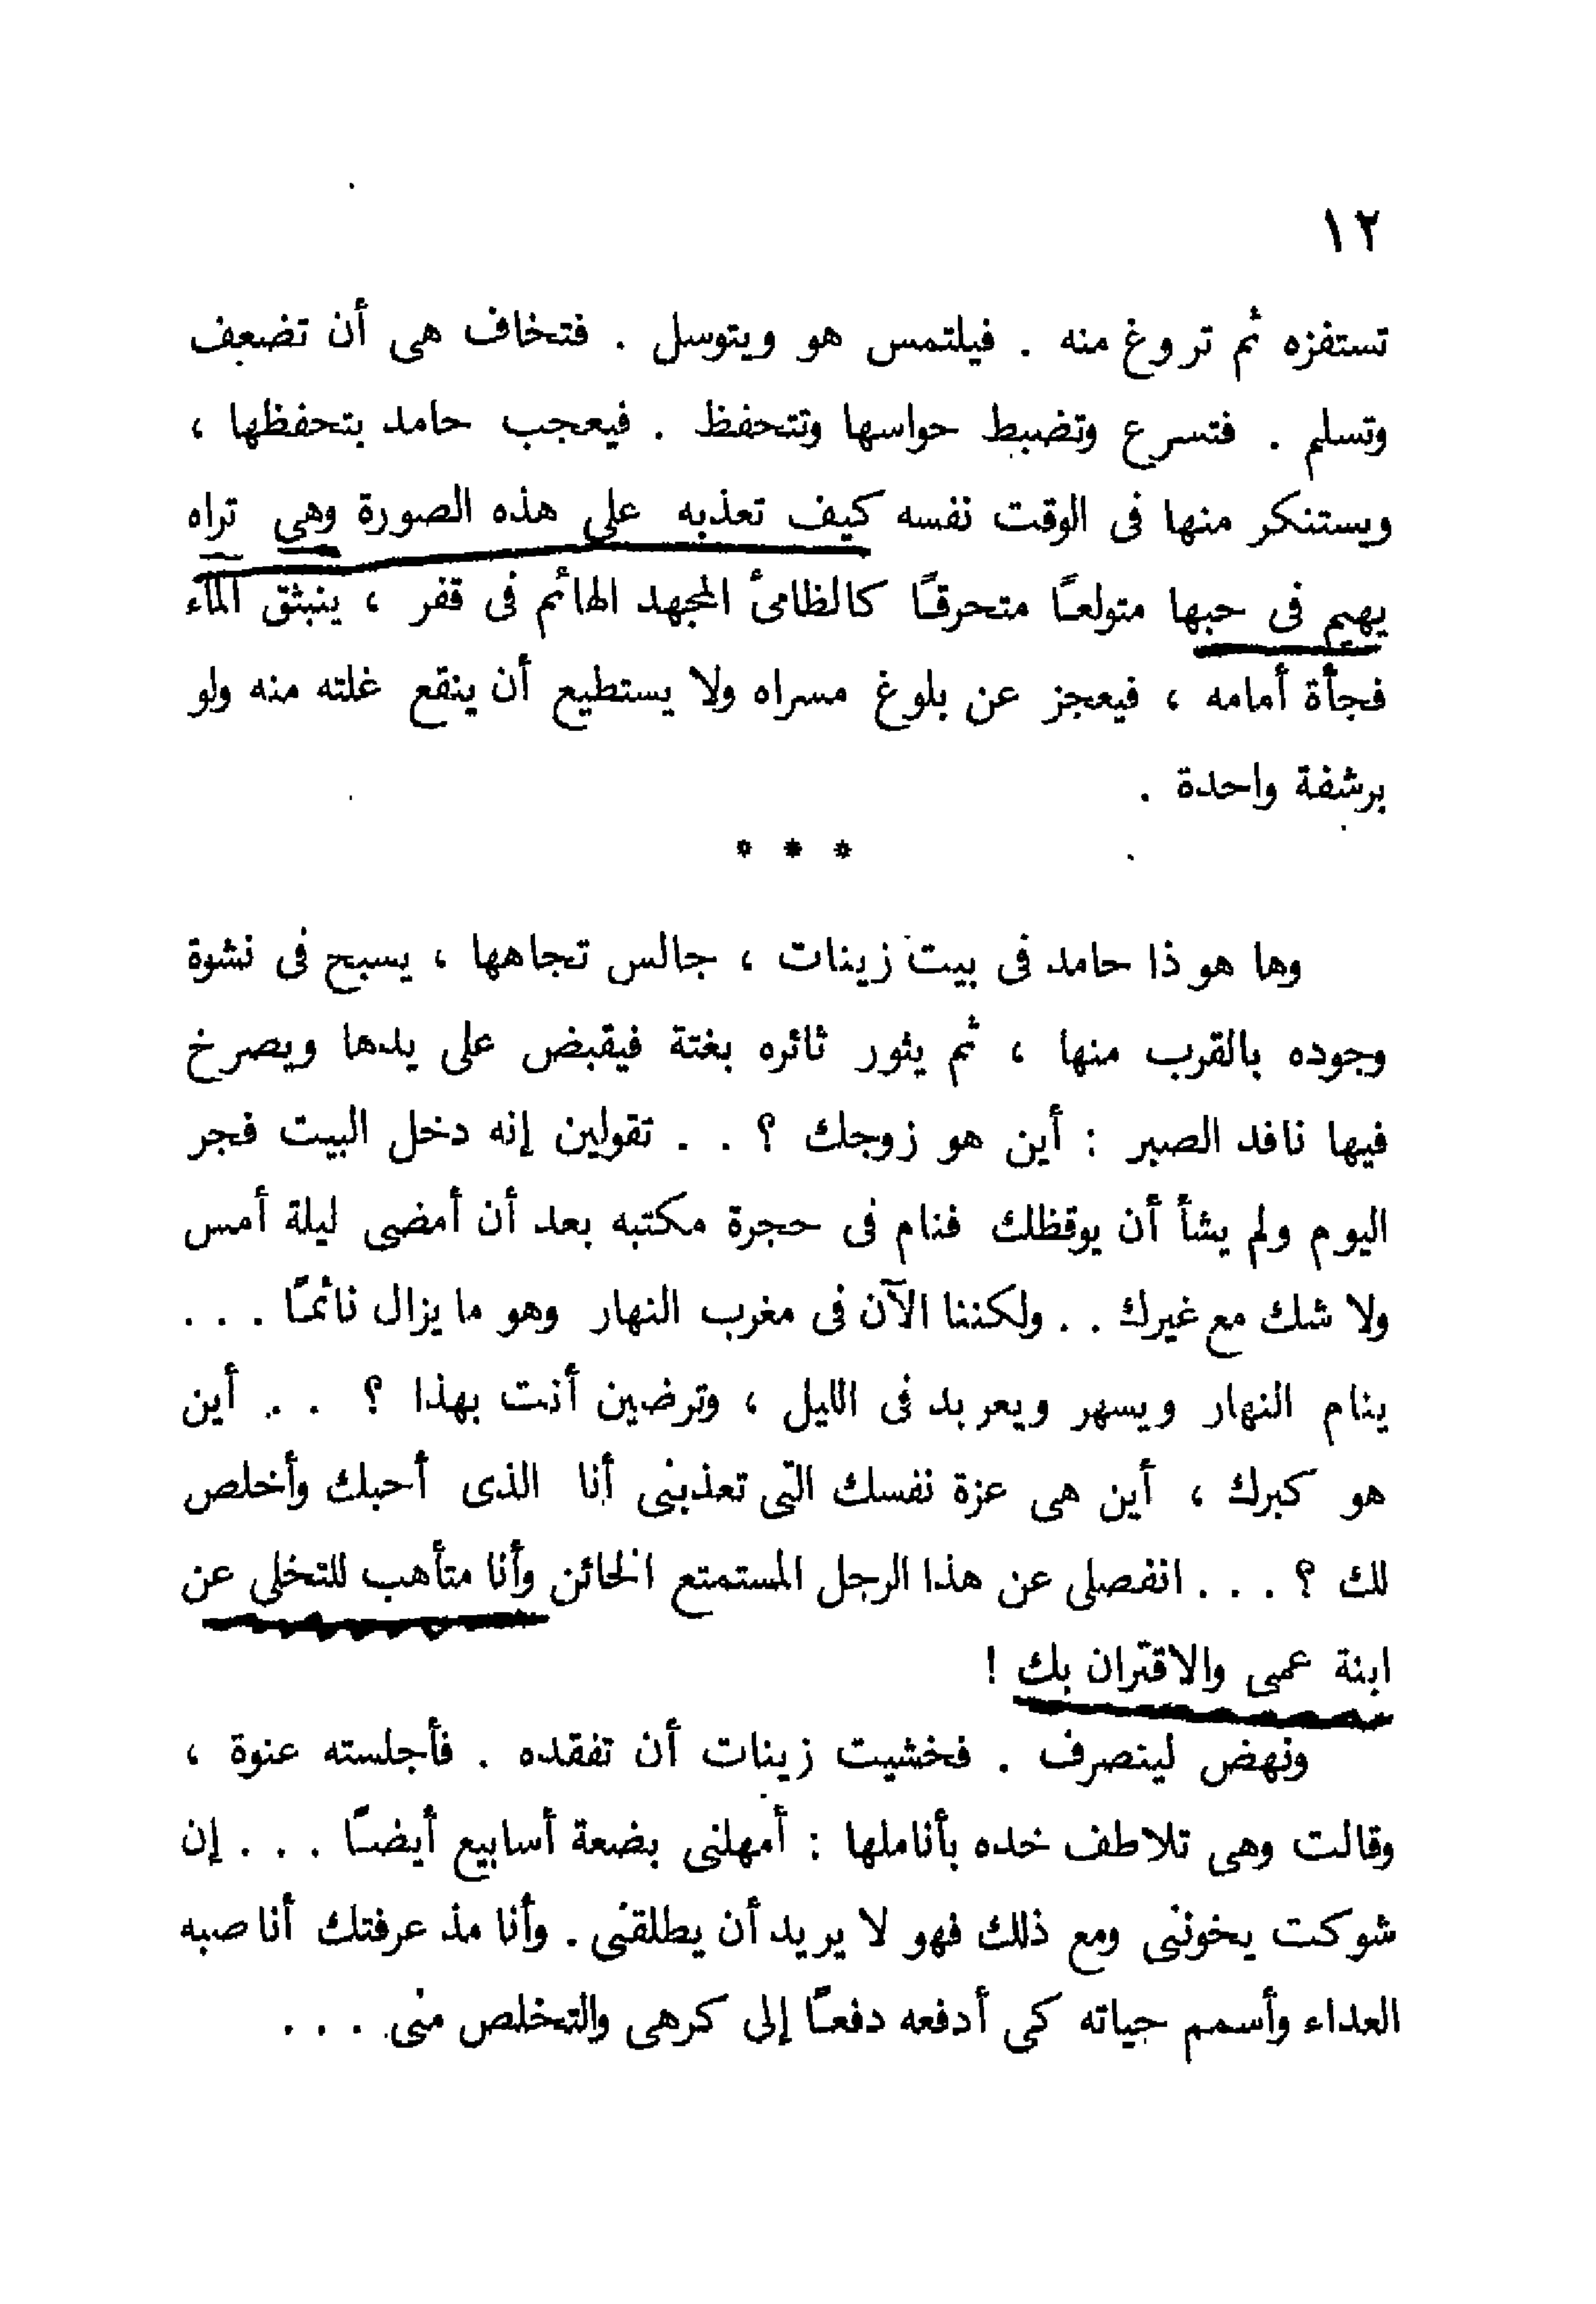 ١٢
تستفزه ثم تروغ منه . فيلتمس هو ويتوسل . فتخاف هى أن تضعف
وتسلم . فتسرع وتضبط حواسها وتتحفظ . فيعجب حامد بتحفظها ،
ويستنكر منها فى الوقت نفسه كيف تعذبه على هذه الصورة وهى تراه
يهيم فى حبها متولعاً متحرقاً كالظامئ المجهد الهائم فى قفر ، ينبثق الماء
فجأة أمامه ، فيعجز عن بلوغ مسراه ولا يستطيع أن ينقع غلته منه ولو
برشفة واحدة .
* * *
وها هو ذا حامد فى بيت زينات ، جالس تجاهها ، يسبح فى نشوة
وجوده بالقرب منها ، ثم يثور ثائره بغتة فيقبض على يدها ويصرخ
فيها نافد الصبر : أين هو زوجك ؟ . . تقولين إنه دخل البيت فجر
اليوم ولم يشأ أن يوقظك فنام فى حجرة مكتبه بعد أن أمضى ليلة أمس
ولا شك مع غيرك . . ولكننا الآن فى مغرب النهار وهو ما يزال نائماً . . .
ينام النهار ويسهر ويعربد فى الليل ، وترضين أنت بهذا ؟ . . أين
هو كبرك ، أين هى عزة نفسك التى تعذبنى أنا الذى أحبك وأخلص
لك ؟ . . . انفصلى عن هذا الرجل المستمتع الخائن وأنا متأهب للتخلى عن
ابنة عمى والاقتران بك !
ونهض لينصرف . فخشيت زينات أن تفقده . فأجلسته عنوة ،
وقالت وهى تلاطف خده بأناملها : أمهلنى بضعة أسابيع أيضاً . . . إن
شوكت يخوننى ومع ذلك فهو لا يريد أن يطلقنى . وأنا مذ عرفتك أناصبه
العداء وأسمم حياته كى أدفعه دفعاً إلى كرهى والتخلص منى . . .